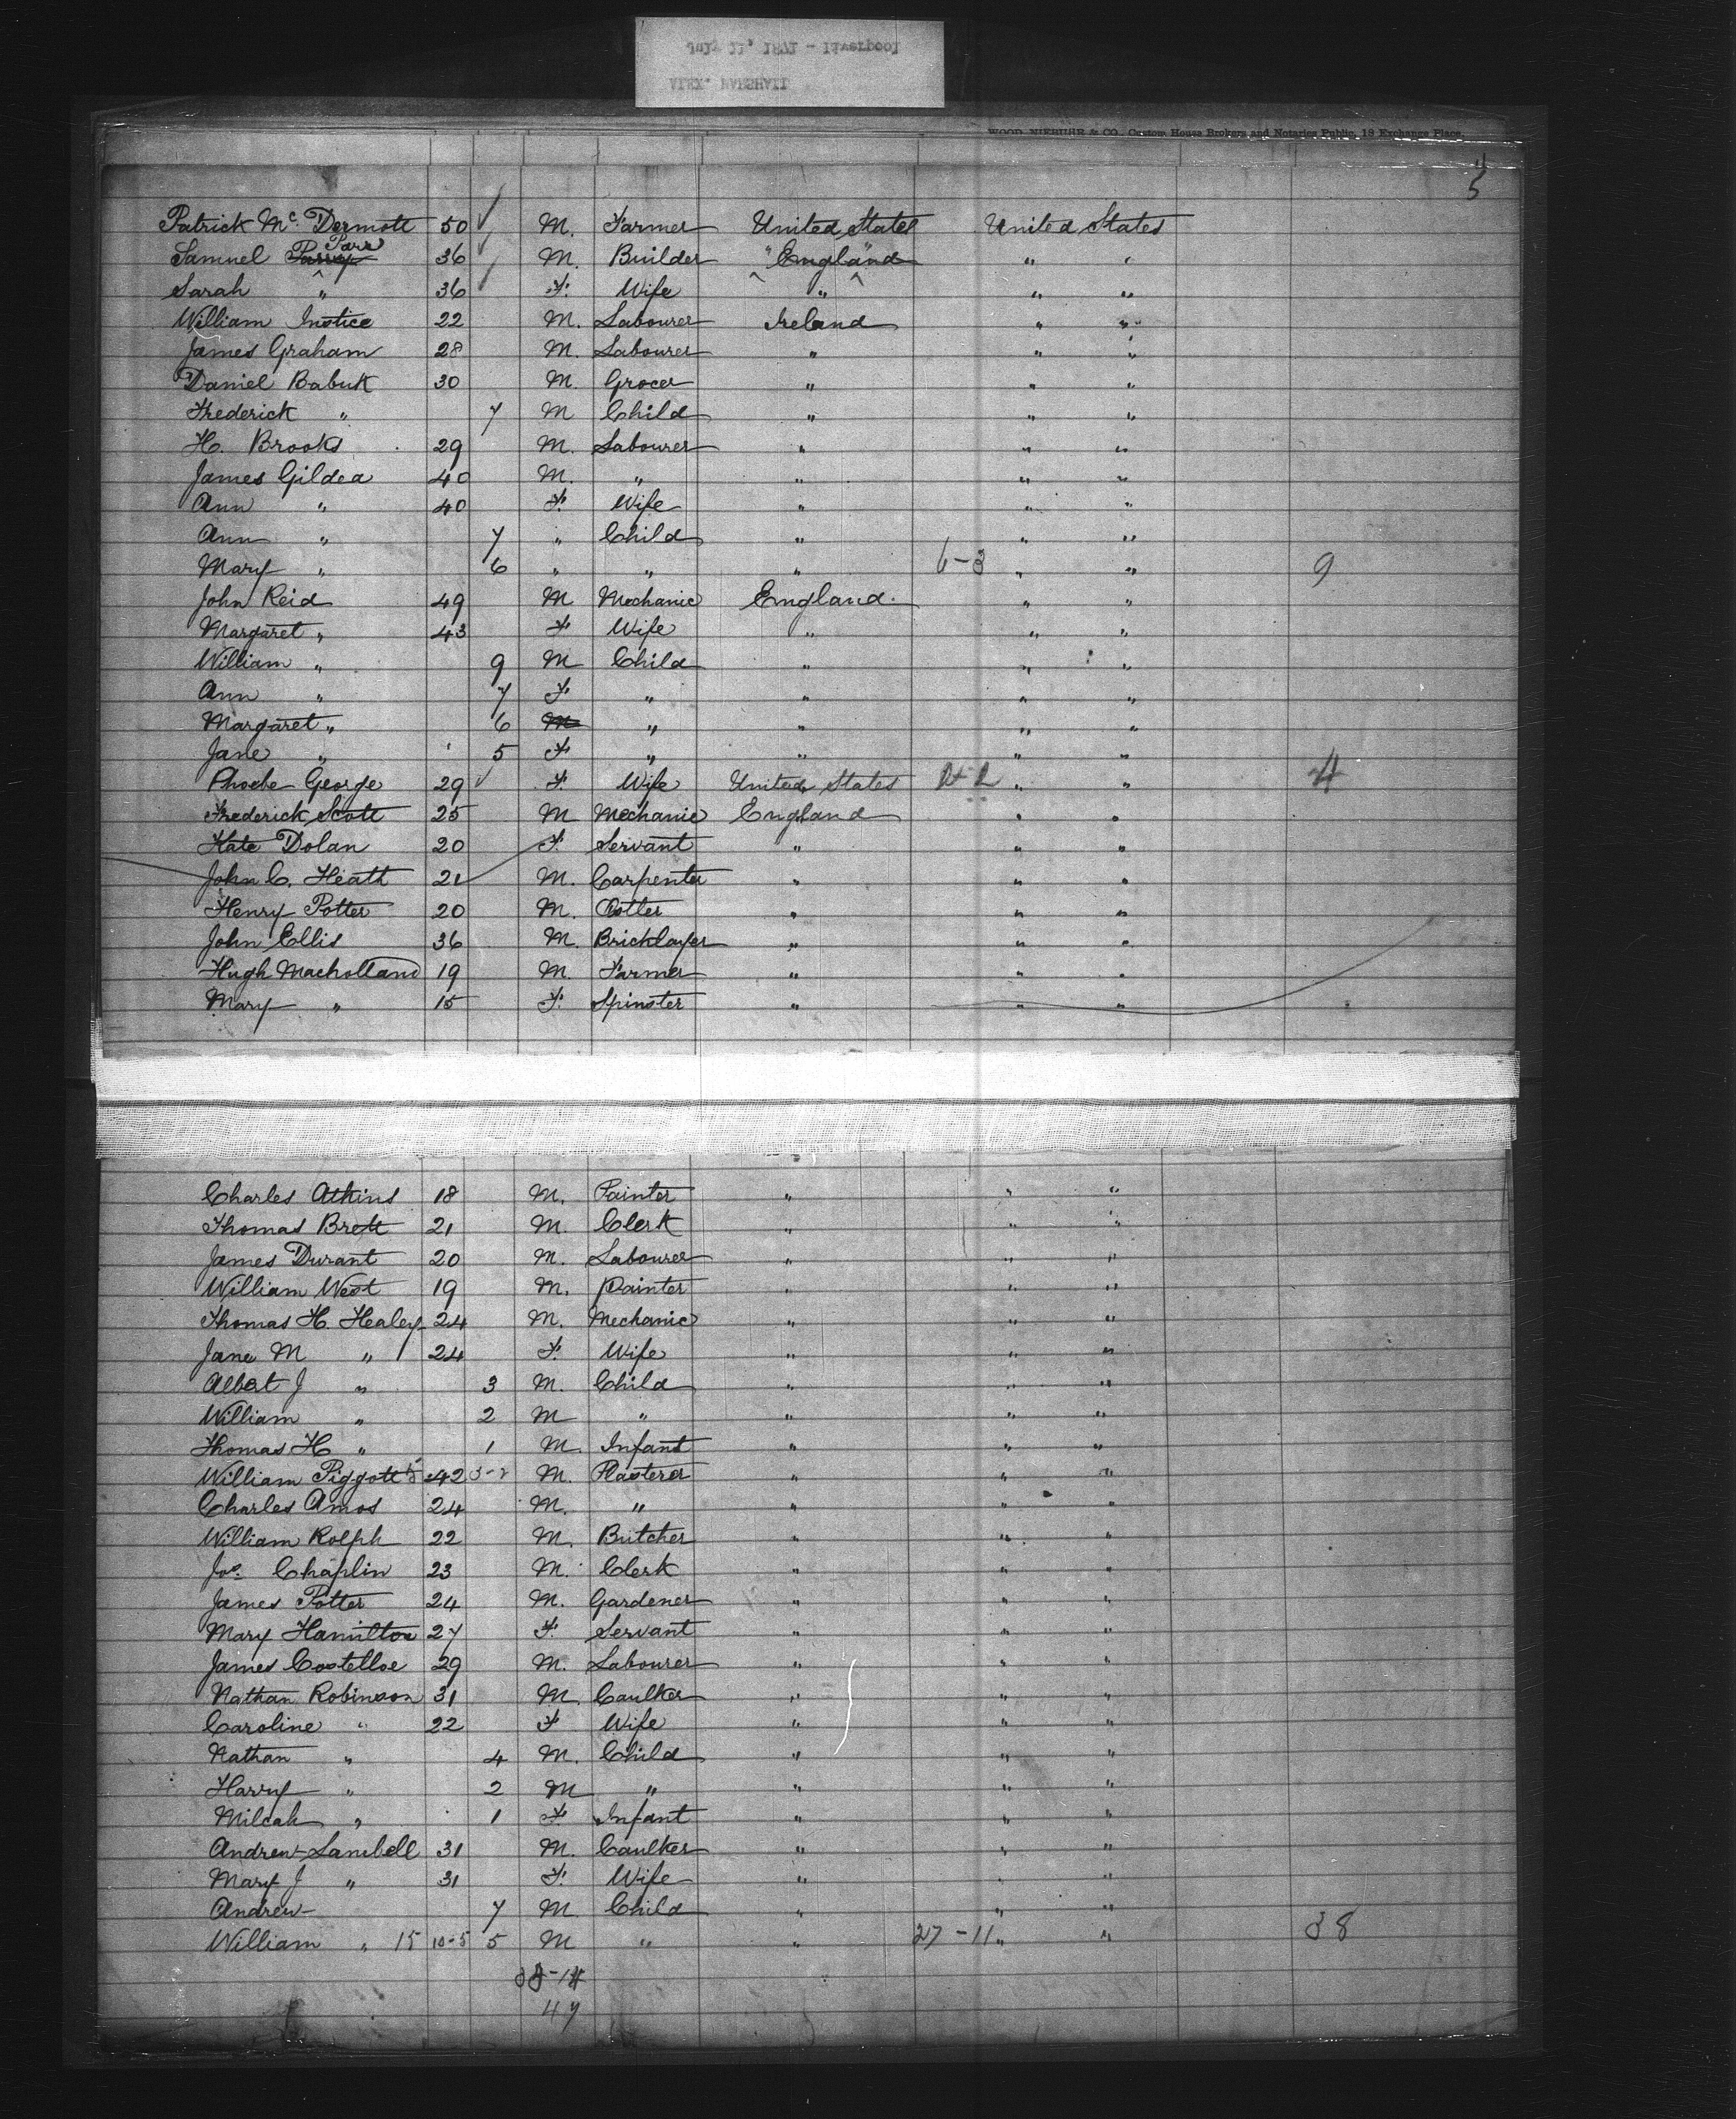 July 11, 1871 - Liverpool
ALEX. MARSHALL
WOOD, NIEBUHR & CO., Custom House Brokers and Notaries Public, 18 Exchange Place.
5
Patrick Mc Dermott 50 ✓ M. Farmer United States United States
Parr
Samuel 36 ✓ M. Builder " England " " "
Sarah " 36 ✓ F. Wife " " "
William Instice 22 M. Labourer Ireland " "
James Graham 28 M. Labourer " " "
Daniel Babuk 30 M. Grocer " " "
Frederick " 7 M Child " " "
H. Brooks 29 M. Labourer " " "
James Gildea 40 M. " " " "
Ann " 40 F. Wife " " "
Ann " 7 " Child " " "
Mary " 6 " " " 6-3 " " 9
John Reid 49 M Mechanic England. " "
Margaret " 43 F Wife " " "
William " 9 M Child " " "
Ann " 7 F " " " "
Margaret " 6 M " " " "
Jane " 5 F " " " "
Phoebe George 29 ✓ F. Wife United States " " 4
Frederick Scott 25 M Mechanic England " "
Kate Dolan 20 F. Servant " " "
John C. Heath 21 M. Carpenter " " "
Henry Potter 20 M. Ostler " " "
John Ellis 36 M. Bricklayer " " "
Hugh Macholland 19 M. Farmer " " "
Mary " 15 F. Spinster " " "
Charles Atkins 18 M. Painter " " "
Thomas Brett 21 M. Clerk " " "
James Durant 20 M. Labourer " " "
William West 19 M. Painter " " "
Thomas H. Healey 24 M. Mechanic " " "
Jane M " 24 F. Wife " " "
Albert J " 3 M. Child " " "
William " 2 M " " " "
Thomas H " 1 M Infant " " "
William Piggott 42 M. Plasterer " " "
Charles Amos 24 M. " " " "
William Rolph 22 M. Butcher " " "
Jos. Chaplin 23 M. Clerk " " "
James Potter 24 M. Gardener " " "
Mary Hamilton 27 F. Servant " " "
James Costelloe 29 M. Labourer " " "
Nathan Robinson 31 M Caulker " " "
Caroline " 22 F Wife " " "
Nathan " 4 M. Child " " "
Harry " 2 M " " " "
Milcah " 1 F Infant " " "
Andrew Lambell 31 M. Caulker " " "
Mary J " 31 F. Wife " " "
Andrew 7 M Child " " "
William " 15 10-5 5 M " " 27-11 " " 38
47